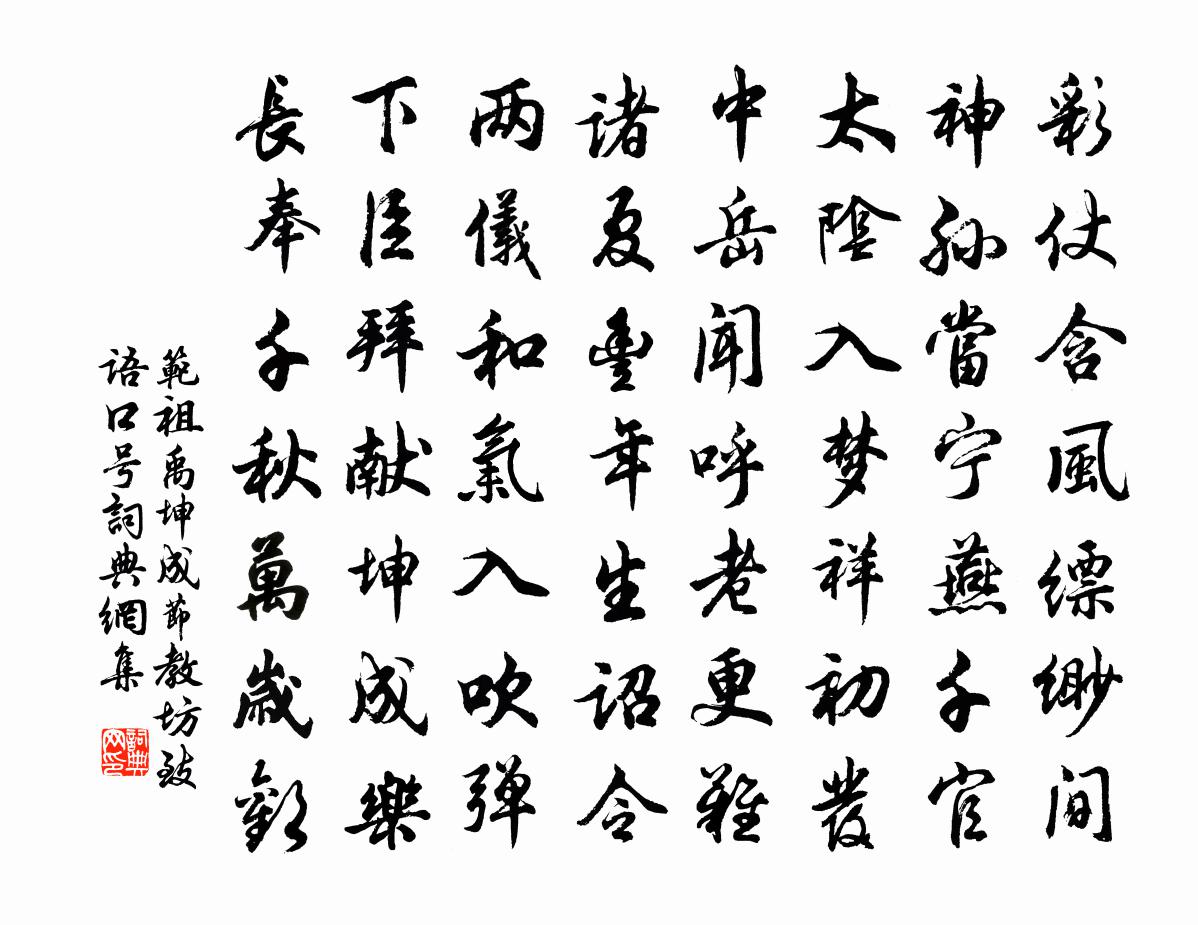 彩仗含風缥缈间
神孙當宁燕千官
太陰入梦祥初發
中岳闻呼老更難
诸夏豊年生诏令
两儀和氣入吹弹
下臣拜献坤成樂
長奉千秋萬歳歡
範祖禹坤成節教坊致
语口号詞典網集
詞典网印